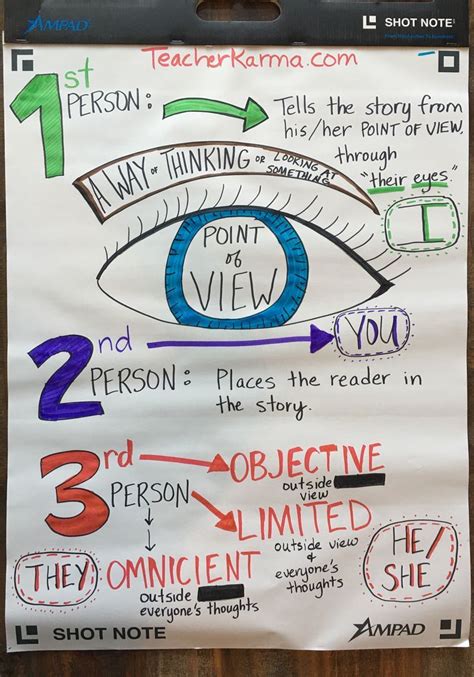 AMPAD
SHOT NOTE
TeacherKarma.com
1st
PERSON:
Tells the story from
his/her POINT OF VIEW,
through
"their eyes"
I
A WAY of THINKING or LOOKING AT
SOMETHING
POINT
of
VIEW
2nd
YOU
PERSON: Places the reader in
the story.
3rd
PERSON
OBJECTIVE
outside
view
LIMITED
outside view
&
everyone's
thoughts
HE/
SHE
THEY
OMNICIENT
outside
everyone's thoughts
SHOT NOTE
AMPAD